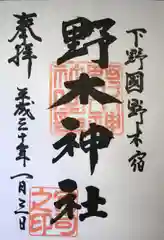 下野国野木宿
野木神社
奉拝
平成三十年
一月三日